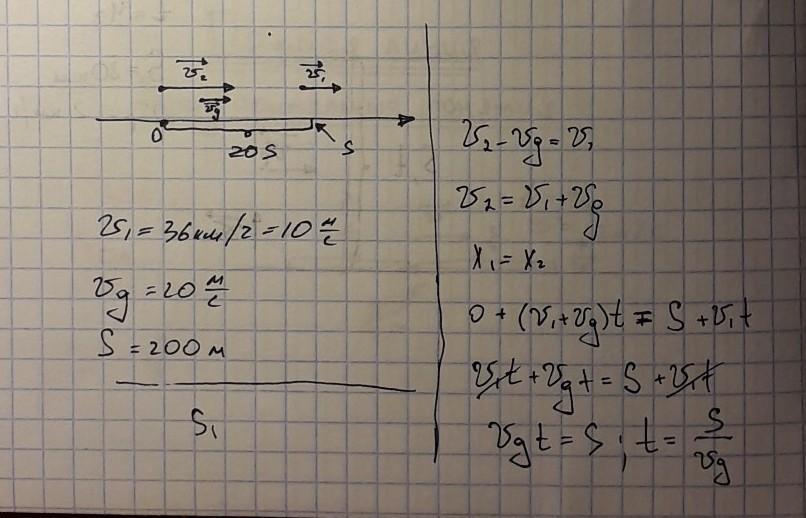 v⃗₂ v⃗₁
v⃗g
0 20S S
v₁ = 36 км/ч = 10 м/с
vg = 20 м/с
S = 200 м
S₁
v₂ - vg = v₁
v₂ = v₁ + vg
x₁ = x₂
0 + (v₁ + vg)t = S + v₁t
v₁t + vgt = S + v₁t
vgt = S ; t = S/vg